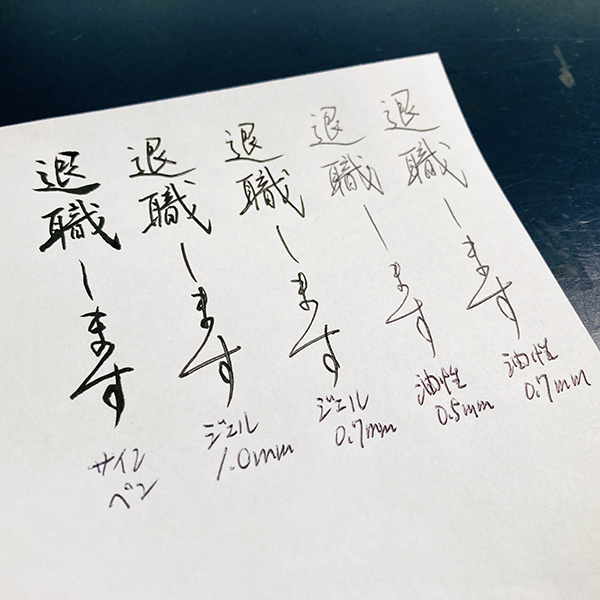 退職します
サイン
ペン
退職します
ジェル
1.0mm
退職します
ジェル
0.7mm
退職します
油性
0.5mm
退職します
油性
0.7mm